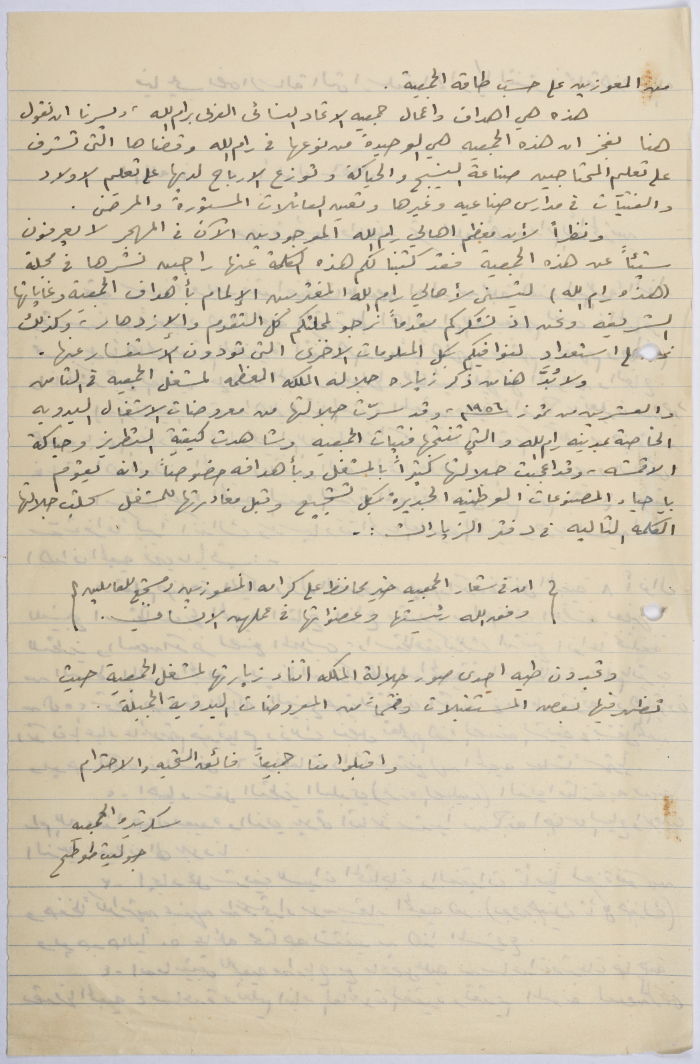 من المعوزين على حسب طاقة الجمعية .
هذه هي اهداف واعمال جمعية الاتحاد النسائي العربي برام الله ، ويسرنا ان نقول
هنا بفخر ان هذه الجمعية هي الوحيدة من نوعها في رام الله وقضاها التي تشرف
على تعليم المحتاجين صناعة النسيج والحياكة وتوزع الارباح لديها على تعليم الاولاد
والفتيات في مدارس صناعية وغيرها وتعين العائلات المستورة والمرضى .
ونظراً لأن معظم اهالي رام الله الموجودين الآن في المهجر لا يعرفون
شيئاً عن هذه الجمعية فقد كتبنا لكم هذه الكلمة عنها راجين نشرها في مجلة
(هذه رام الله) ليتسنى لأهالي رام الله المغتربين الإلمام بأهداف الجمعية وغاياتها
الشريفة ونحن اذ نشكركم مقدماً نرجو لمجلتكم كل التقدم والإزدهار ، وكذلك
نحن على استعداد لنوافيكم بكل المعلومات الاخرى التي تودون الأستفسار عنها .
ولا بُدَّ هنا من ذكر زيارة جلالة الملكة المعظمة لمشغل الجمعية في الثامن
والعشرين من تموز ١٩٥٦ ، وقد سرّت جلالتها من معروضات الاشغال اليدوية
الخاصة بمدينة رام الله والتي تنتجها فتيات الجمعية وشاهدت كيفية التطريز وحياكة
الاقمشة ، وقد اعجبت جلالتها كثيراً بالمشغل وبأهدافه خصوصاً وانه يقوم
بإحياء المصنوعات الوطنية الجديرة بكل تشجيع وقبل مغادرتها للمشغل كتبت جلالتها
الكلمة التالية في دفتر الزيارات :-
{ ان في شعار الجمعية خير محافظ على كرامة المعوزين ومشجع للعاملين }
{ وفق الله رئيستها وعضواتها في عملهن الانساني . }
وتجدون طيه احدى صور جلالة الملكة اثناء زيارتها لمشغل الجمعية حيث
تظهر فيها بعض المستقبلات وقسماً من المعروضات اليدوية الجميلة .
واقبلوا منا جميعاً فائق التحية والاحترام
سكرتيرة الجمعية
جوليت